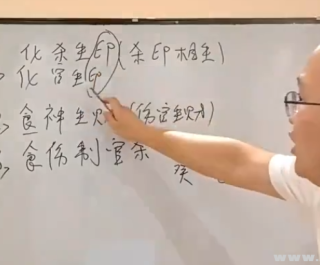 化杀生印(杀印相生)
化官生印
食神生财(伤官生财)
食伤制官杀
癸
www.